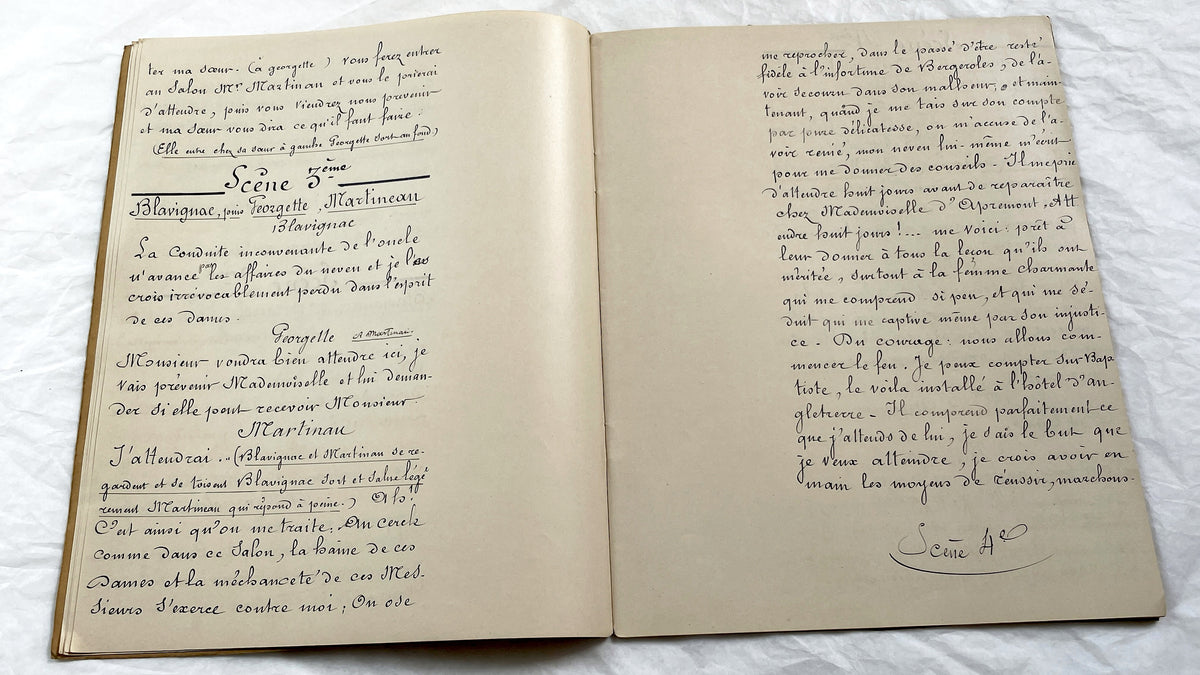 ter ma sœur. (à georgette) vous ferez entrer
au Salon Mr Martinau et vous le prierai
d'attendre, puis vous viendrez nous prévenir
et ma sœur vous dira ce qu'il faut faire.
(Elle entre chez sa sœur à gauche Georgette sort au fond)
Scène 3ème
Blavignac, puis Georgette, Martineau
Blavignac
La Conduite inconvenante de l'oncle
n'avance pas les affaires du neveu et je le
crois irrévocablement perdu dans l'esprit
de ces dames.
Georgette A Martinau.
Monsieur voudra bien attendre ici, je
vais prévenir Mademoiselle et lui deman-
der si elle peut recevoir Monsieur.
Martinau
J'attendrai .. (Blavignac et Martinau se re-
gardent et se toisent Blavignac sort et salue légè
rement Martineau qui répond à peine.) Ah!
C'est ainsi qu'on me traite: Au cercle
comme dans ce Salon, la haine de ces
Dames et la méchanceté de ces Mes-
sieurs s'exerce contre moi; On ose
me reprocher, dans le passé d'être resté
fidèle à l'infortune de Bergeroles, de l'a-
voir secouru dans son malheur, et main-
tenant, quand je me tais sur son compte
par pure délicatesse, on m'accuse de l'a-
voir renié, mon neveu lui-même m'écrit
pour me donner des conseils - Il me prie
d'attendre huit jours avant de reparaître
chez Mademoiselle d'Apremont, Att
endre huit jours!... me voici: prêt à
leur donner à tous la leçon qu'ils ont
méritée, surtout à la femme charmante
qui me comprend si peu, et qui me sé-
duit qui me captive même par son injusti-
ce - Du courage: nous allons com-
mencer le feu. Je peux compter sur Bap
tiste, le voila installé à l'hôtel d'an-
gletrerre - Il comprend parfaitement ce
que j'attends de lui, je sais le but que
je veux atteindre, je crois avoir en
main les moyens de réussir, marchons.
Scène 4e